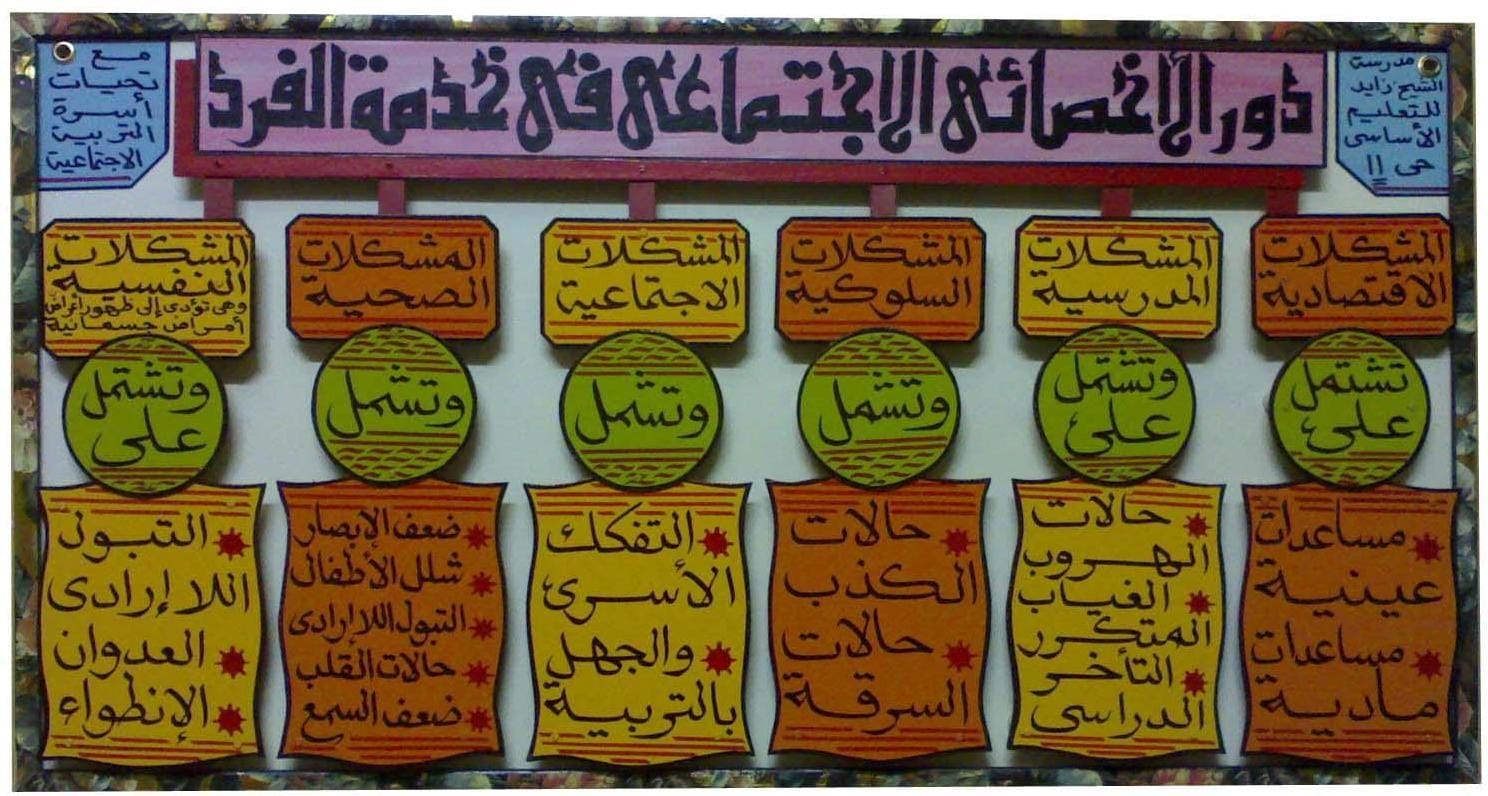 دور الأخصائى الاجتماعى فى خدمة الفرد
مدرسة
الشيخ زايد
للتعليم
الأساسى
حى 11
مع
تحيات
أسرة
التربية
الاجتماعية
المشكلات
الاقتصادية
تشتمل
على
مساعدات
عينية
مساعدات
مادية
المشكلات
المدرسية
وتشتمل
على
حالات
الهروب
الغياب
المتكرر
التأخر
الدراسى
المشكلات
السلوكية
وتشمل
حالات
الكذب
حالات
السرقة
المشكلات
الاجتماعية
وتشمل
التفكك
الأسرى
والجهل
بالتربية
المشكلات
الصحية
وتشمل
ضعف الإبصار
شلل الأطفال
التبول اللاإرادى
حالات القلب
ضعف السمع
المشكلات
النفسية
وهى تؤدى إلى ظهور أعراض
أمراض جسمانية
وتشتمل
على
التبول
اللاإرادى
العدوان
الإنطواء